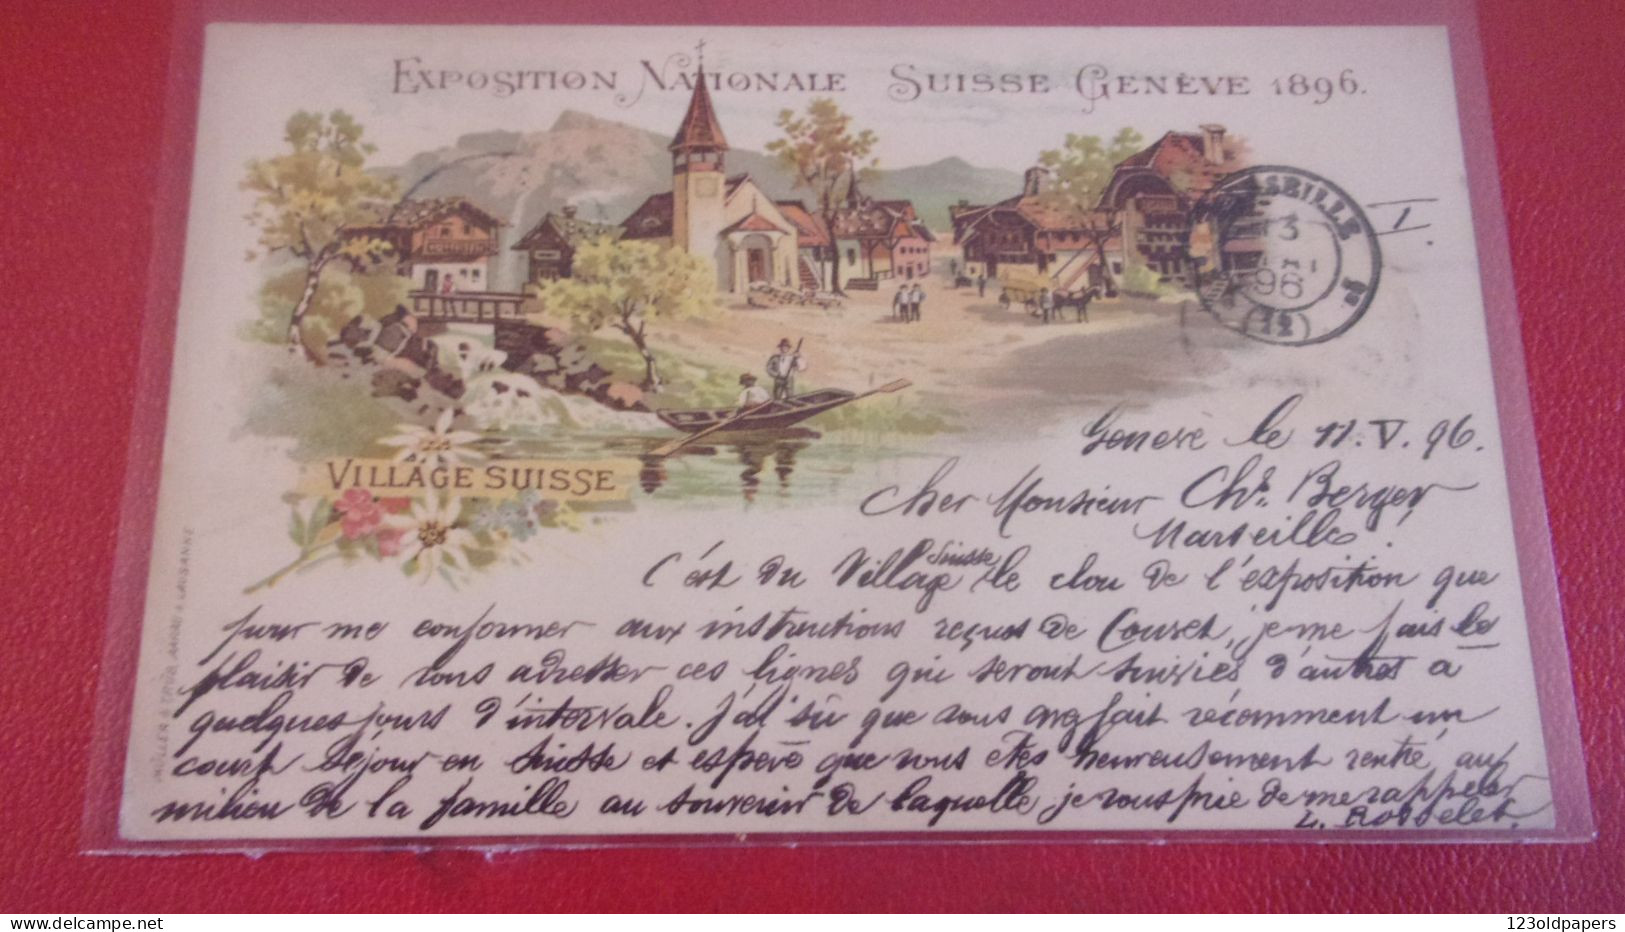 EXPOSITION NATIONALE SUISSE GENÈVE 1896.
MARSEILLE
13
96
(12)
I.
VILLAGE SUISSE
Geneve le 11.V.96.
Cher Monsieur Chs. Berger
Marseille!
C'est du Village Suisse le clou de l'exposition que
pour me conformer aux instructions reçues de Couset, je me fais le
plaisir de vous adresser ces lignes qui seront suivies d'autres à
quelques jours d'intervale. J'ai sû que vous avez fait récemment un
court séjour en Suisse et espère que vous êtes heureusement rentré au
milieu de la famille au souvenir de laquelle je vous prie de me rappeler
L. Rosselet.
MÜLLER & TRÜB, AARAU & LAUSANNE
123oldpapers